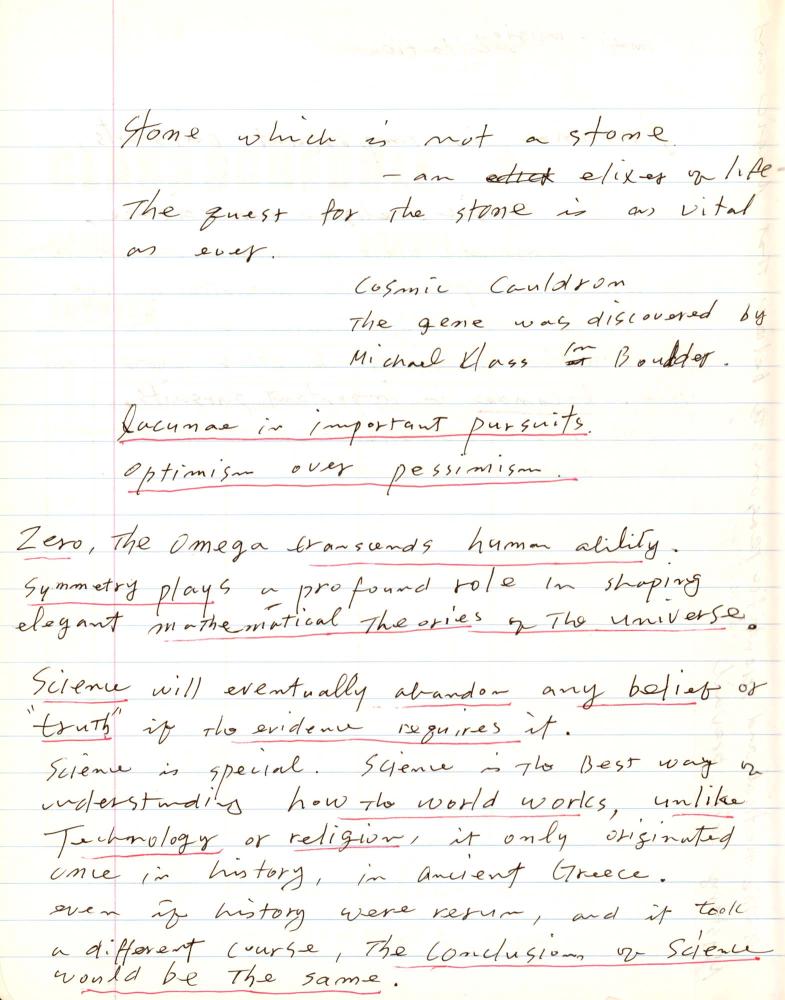 Stone which is not a stone.
- an elixer of life
The quest for the stone is as vital
as ever.
Cosmic Cauldron
The gene was discovered by
Michael Klass in Boulder.
Lacunae in important pursuits.
Optimism over pessimism.
Zero, the Omega transcends human ability.
Symmetry plays a profound role in shaping
elegant mathematical theories of the universe.
Science will eventually abandon any belief or
"truth" if the evidence requires it.
Science is special. Science is the Best way of
understanding how the world works, unlike
Technology or religion, it only originated
once in history, in ancient Greece.
even if history were rerun, and it took
a different course, the conclusions of Science
would be the same.